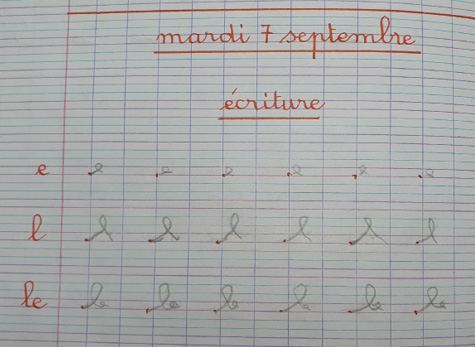 mardi 7 septembre
écriture
e e e e e e e
l l l l l l l
le le le le le le le